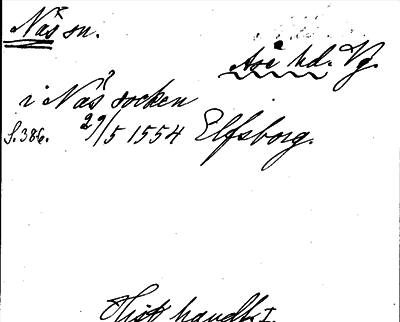 Näs sn.
Åse hd. Vg.
i Näs socken
S. 386. 29/5 1554 Elfsborg.
Hist. handl. I.